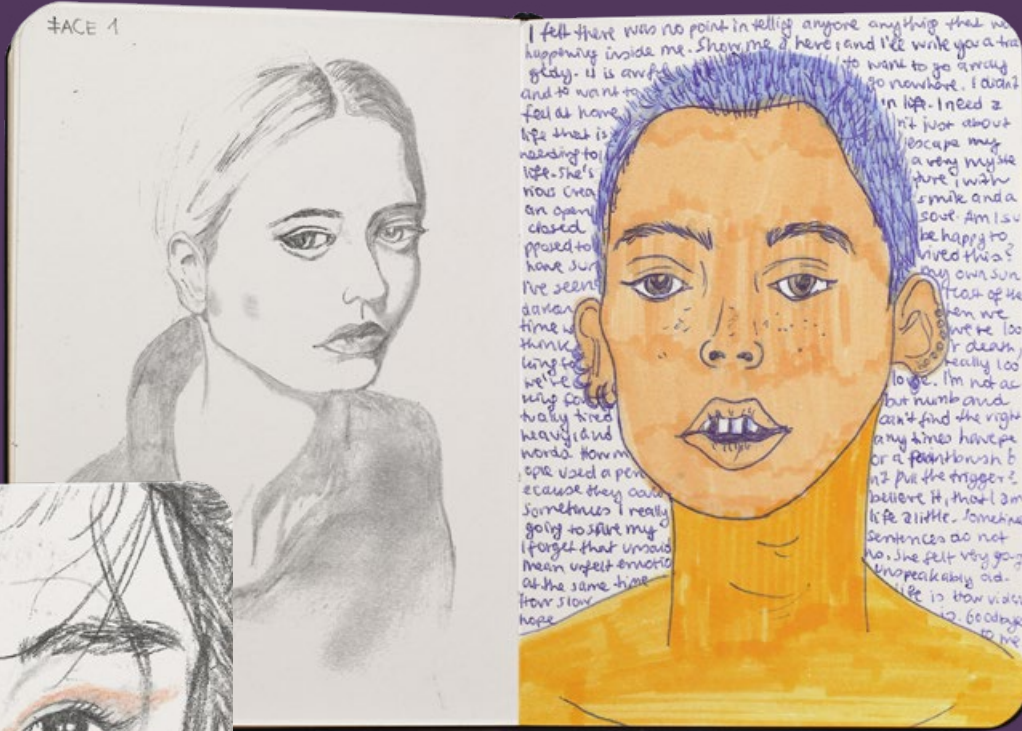 FACE 1
I felt there was no point in telling anyone anything that wa
happening inside me. Show me a hero and I'll write you a tra
gedy. It is awf to want to go away
and to want to go nowhere. I didn't
feel at home in life. I need a
life that is n't just about
needing to escape my
life. She's a very myste
rious crea ture, with
an open smile and a
closed soul. Am I su
pposed to be happy to
have sur vived this?
I've seen my own sun
darken of the
time w hen we
think we're loo
king for death,
we're really loo
king for love. I'm not ac
tually tired but numb and
heavy and can't find the right
words. How m any times have pe
ople used a pen or a paintbrush b
ecause they could n't pull the trigger?
Sometimes I really believe it, that I am
going to save my life a little. Sometime
I forget that unsaid sentences do not
mean unfelt emotio ns. She felt very
at the same time unspeakably
How slow life is How violen
hope is. Goodbye
to me